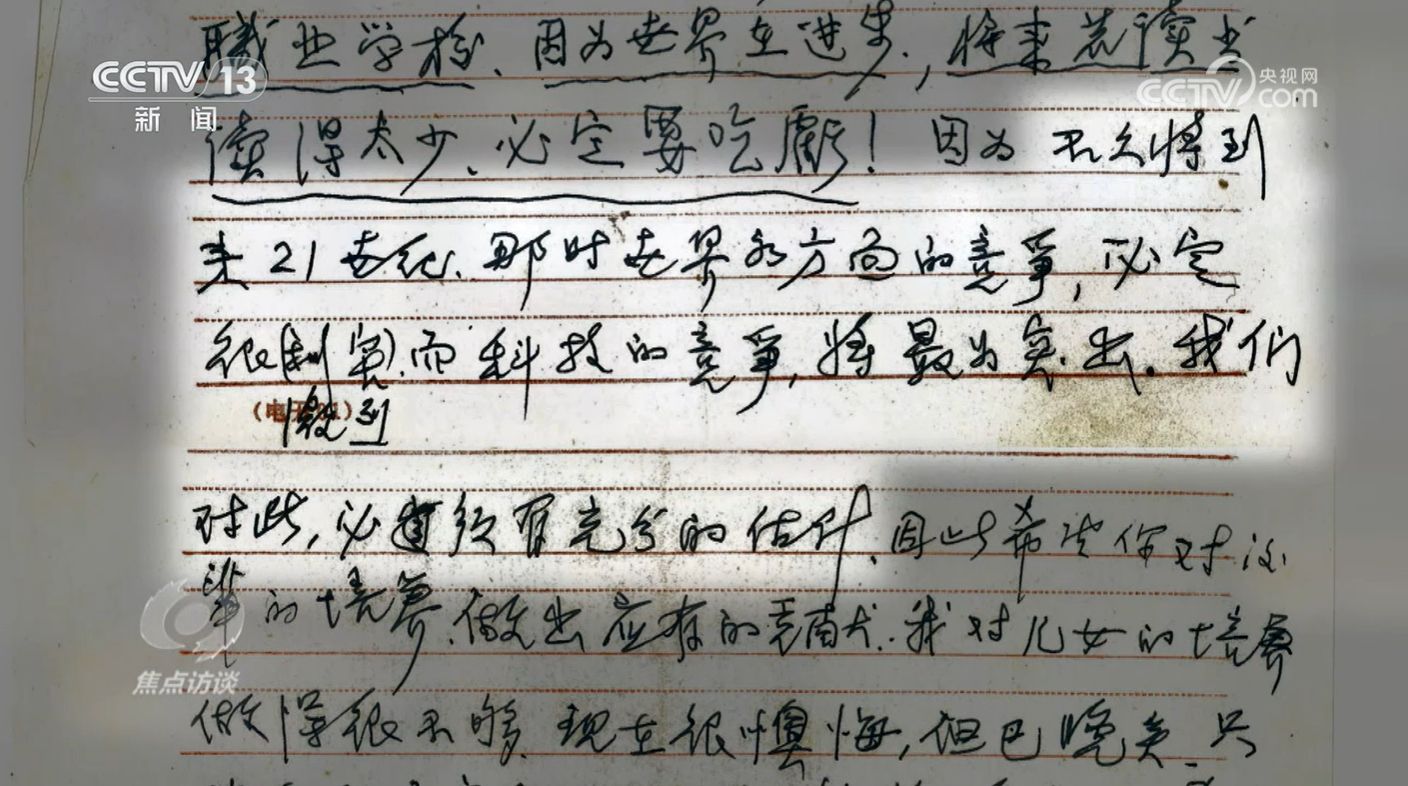 职业学校、因为世界在进步，将来若读书
CCTV 13
新闻
央视网
CCTV.com
读得太少、必定要吃虧！因为不久将到
来21世纪、那时世界各方面的竞争，必定
很(剧
)而科技的竞争，将最为突出。我们
激到
对此，必须有充分的估计、因此希望你对后
辈的培养、做出应有的贡献、我对儿女的培养
焦点访谈
做得很不够、现在很懊悔，但已晚矣、只